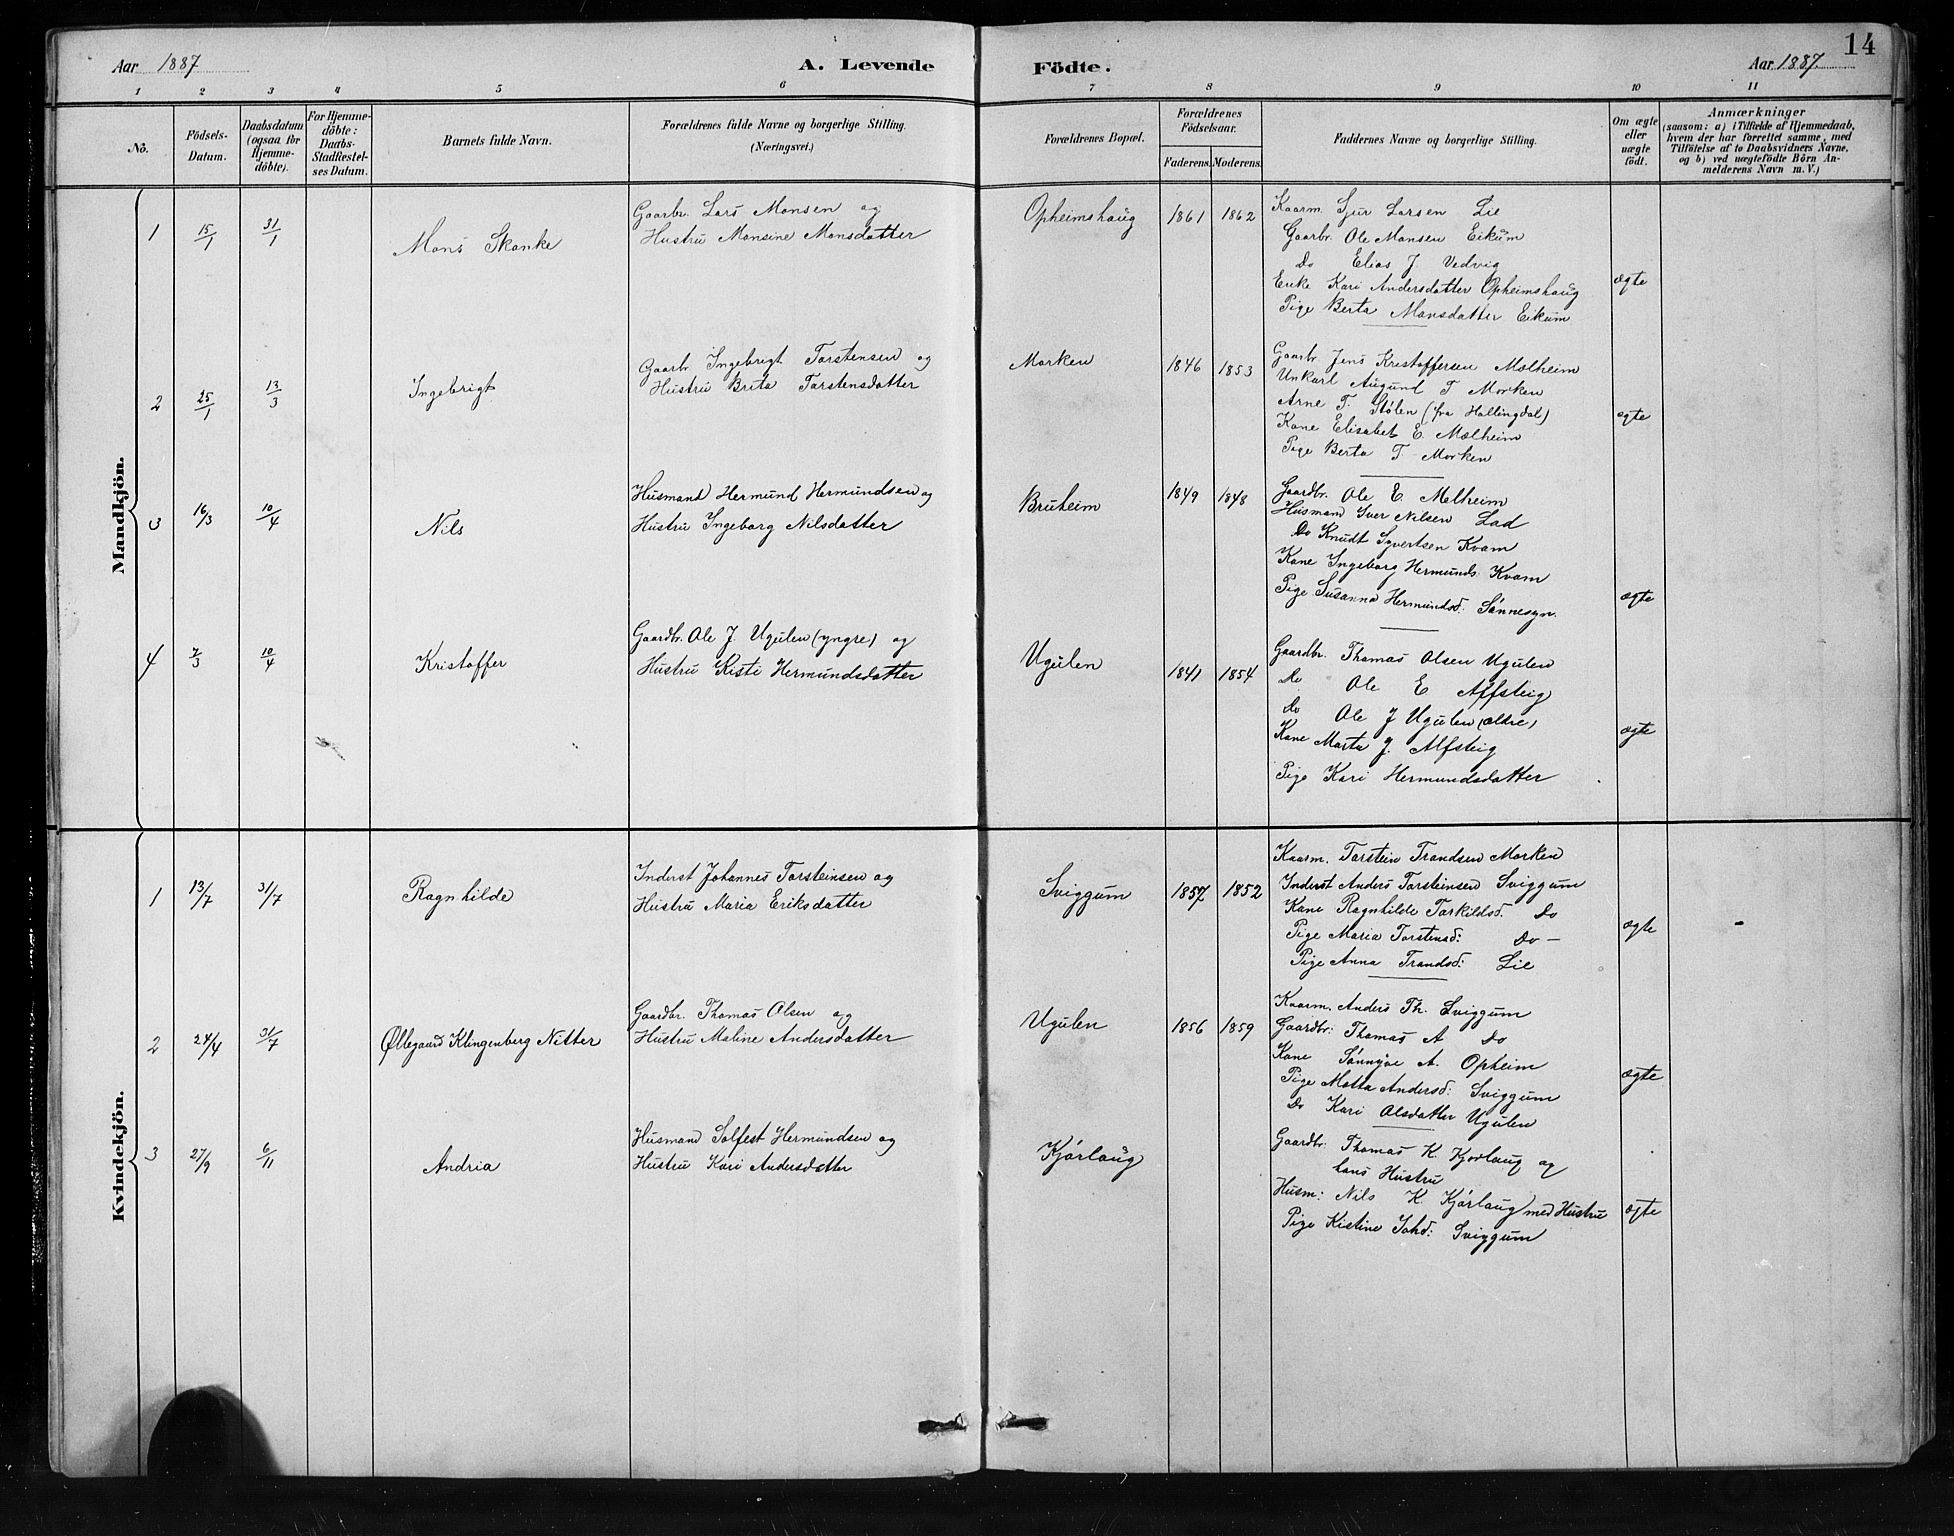 14
Aar 1887
A. Levende Födte.
Aar 1887
1 2 3 4 5 6 7 8 9 10 11
No.
Födsels-Datum.
Daabsdatum (ogsaa for Hjemmedöbte).
For Hjemmedöbte: Daabs-Stadfestelses Datum.
Barnets fulde Navn.
Forældrenes fulde Navne og borgerlige Stilling.
(Næringsvei.)
Forældrenes Bopæl.
Forældrenes Födselsaar.
Faderens. Moderens.
Faddernes Navne og borgerlige Stilling.
Om ægte eller uægte födt.
Anmærkninger
(saasom: a) i Tilfælde af Hjemmedaab,
hvem der har forrettet samme, med
Tilföielse af to Daabsvidners Navne,
og b) ved uægtefödte Börn Anmelderens Navn m. V.)
Mandkjön.
1 15/1 31/1 Mons Skanke
Gaarbr. Lars Monsen og
Hustru Monsine Monsdatter
Opheimshaug 1861 1862
Kaarm. Sjur Larsen Lie
Gaarbr. Ole Monsen Eikum
Do Elias J. Vedvig
Enke Kari Andersdatter Opheimshaug
Pige Berta Monsdatter Eikum
ægte
2 25/1 13/3 Ingebrigt
Gaarbr Ingebrigt Torstensen og
Hustru Brita Torstensdatter
Morken 1846 1853
Gaarbr. Jens Kristoffersen Mølheim
Unkarl Augund T Morken
Arne T. Stølen (fra Hallingdal)
Kone Elisabet E. Mælheim
Pige Berta T. Morken
ægte
3 16/3 10/4 Nils
Husmand Hermund Hermundsen og
Hustru Ingeborg Nilsdatter
Bruheim 1849 1848
Gaardbr. Ole E. Melheim
Husmand Iver Nilsen Lad
Do Knudt Syvertsen Kvam
Kone Ingeborg Hermunds. Kvam
Pige Susanna Hermundsd: Sønnesyn.
ægte
4 7/3 10/4 Kristoffer
Gaardbr. Ole J. Ugulen (yngre) og
Hustru Kisti Hermundsdatter
Ugulen 1841 1854
Gaardbr. Thomas Olsen Ugulen
Do Ole E Affsteig
Do Ole J Ugulen (ældre)
Kone Marta J. Alfsteig
Pige Kari Hermundsdatter
ægte
Kvindekjön.
1 13/7 31/7 Ragnhilde
Inderst Johannes Torsteinsen og
Hustru Maria Eriksdatter
Sviggum 1857 1852
Kaarm. Torstein Trondsen Morken
Inderst Anders Torsteinsen Sviggum
Kone Ragnhilde Torkildsd. Do
Pige Maria Torstensd: Do —
Pige Anna Trondsd: Lie
ægte -
2 24/4 31/7 Øllegaard Klingenberg Nitter
Gaardbr. Thomas Olsen og
Hustru Maline Andersdatter
Ugulen 1856 1859
Kaarm. Anders Th. Sviggum
Gaardbr: Thomas A Do
Kone Sønnyøe A. Opheim
Pige Motta Andersd: Sviggum
Do Kari Olsdatter Ugulen
ægte
3 27/9 6/11 Andria
Husmand Solfest Hermundsen og
Hustru Kari Andersdatter
Kjørlaug
Gaardbr: Thomas K. Kjørlaug og
hans Hustru
Husm: Nils K. Kjørlaug med Hustru
Pige Kistine Johd: Sviggum
ægte